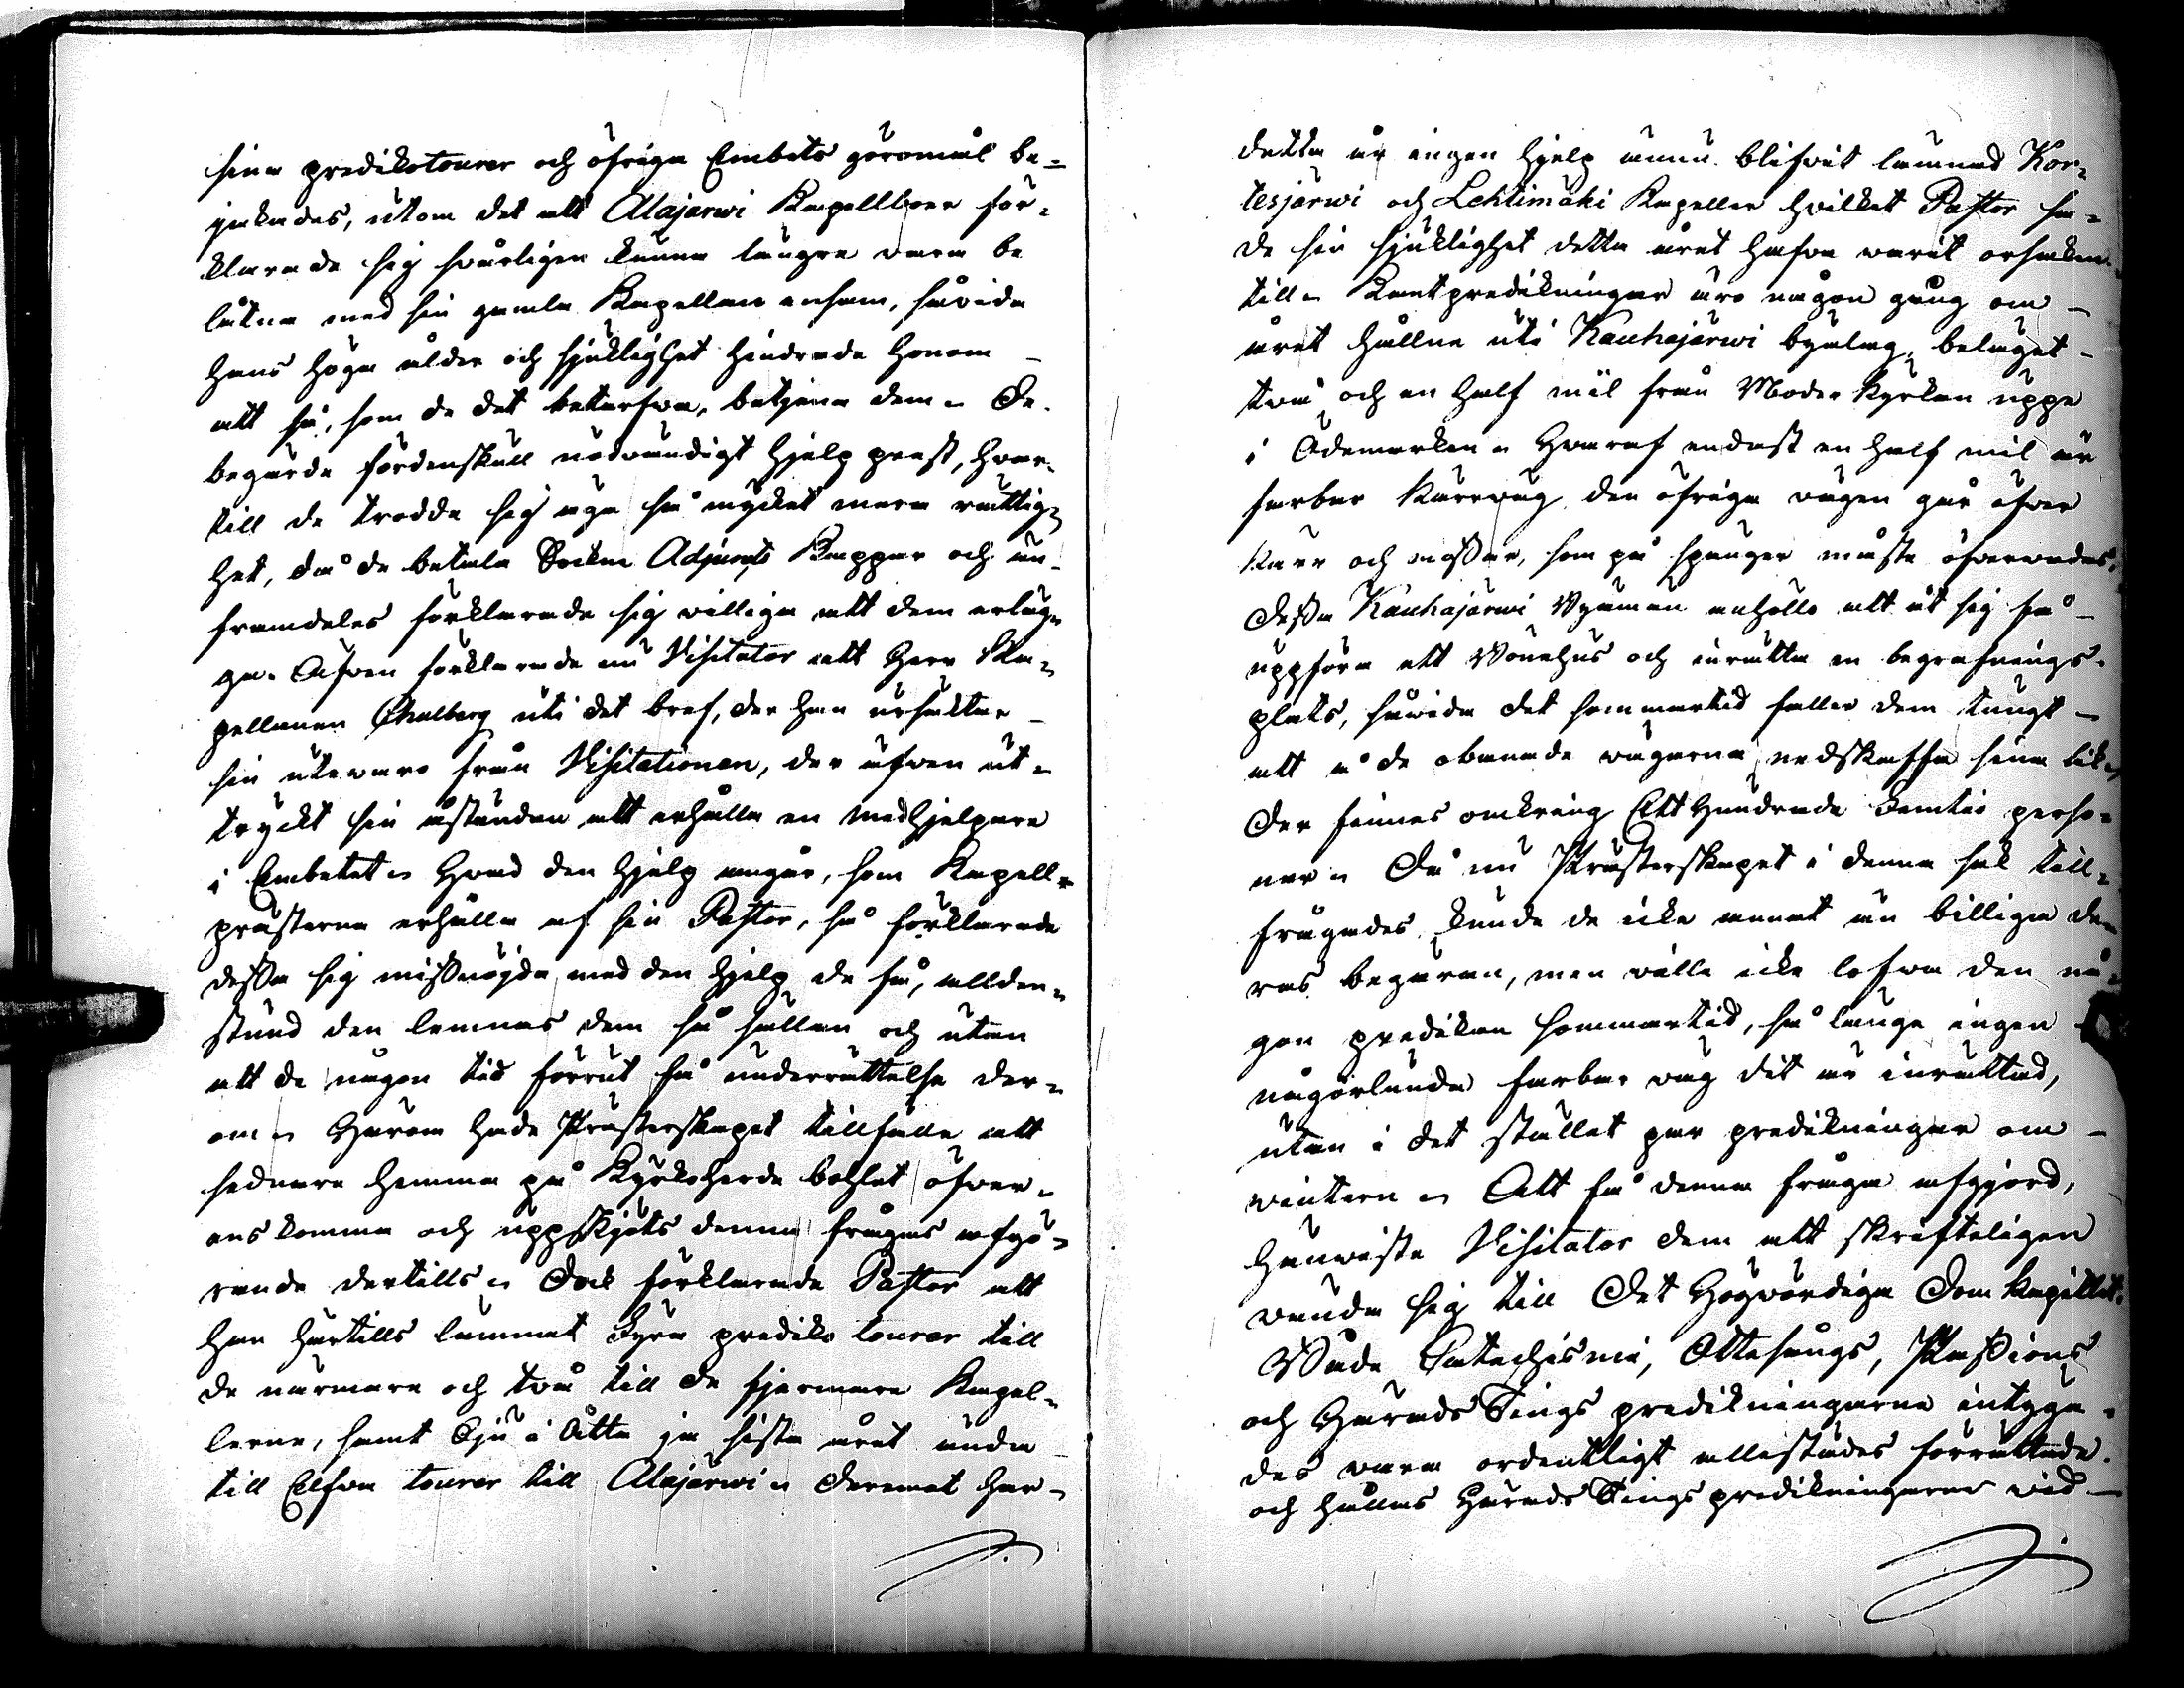 sina predikotourer och öfriga Embets göromål be-
jakades, utom det att Alajärwi Kapellboer för-
klarade sig svårligen kunna längre vara be
låtna med sin gamla Kapellan ensam, såvida
hans höga ålder och sjuklighet hindrade honom
att så, som de det betarfva, betjena dem. De
begärde fördenskull nödvändigt hjelp prest, hvar-
till de trodde sig äga så mycket mera rättig-
het, då de betala Sockne Adjuncts Kappar och än
framdeles förklarade sig villiga att dem erläg-
ga. Äfven förklarade nu Visitator att Herr Ka-
pellanen Chalberg uti det bref, der han ursäktar
sin utewaro från Visitationen, der äfven ut-
tryckt sin åstundan att erhålla en medhjelpare
i Embetet. Hvad den hjelp angår, som Kapell-
prästerna erhålla af sin Pastor, så förklarade
dessa sig missnöjda med den hjelp de få, allden-
stund den lemnas dem så sällan och utan
att de någon tid förrut få underrättelse der-
om. Härom hade Prästerskapet tillfälle att
sednare hemma på Kyrkoherde bohlet öfver-
ens komma och uppskjöts denna frågas afgö-
rande dertills. Dock förklarade Pastor att
han härtills lemnat Fyra prediko tourer till
de närmare och två till de fjermare Kapel-
lerne, samt Sju à Åtta ja sista året ända
till Elfva tourer till Alajärwi. Deremot har
detta år ingen hjelp ännu blifvit lemnad Kor-
tesjärwi och Lehtimäki Kapeller hvilket Pastor sa-
de sin sjuklighet detta året hafva warit orsaken
till. Bönepredikningar äro någon gång om
året hållne uti Kauhajärwi byalag, beläget
två och en half mil från Moder Kyrkan uppe
i Ödemarken. Hvaraf endast en half mil är
farbar Kärrwäg den öfriga vägen går öfver
Kärr och mossar, som på spänger måste öfverwadas.
Dessa Kauhajärwi Byamän anhöllo att åt sig få
uppföra ett Bönehus och inrätta en begrafnings-
plats, såwida det sommartid faller dem tungt
att å de obanade wägarna nedskaffa sina lik.
Der finnes omkring Ett Hundrade Femtio perso-
ner. Då nu Prästerskapet i denna sak till-
frågades kunde de icke annat än billiga de-
ras begäran, men wille icke lofva den nå-
gon predikan sommartid, så länge ingen
någorlunda farbar wäg dit är inrättad,
utan i det stället par predikningar om
vintern. Att få denna fråga afgjord,
hänwiste Visitator dem att skrifteligen
wända sig till Det Högwördiga Dom Kapitlet.
Både Catechismi, Ottesångs, Passions
och Härads Tings predikningarna intyga-
des wara ordentligt allestädes förrättade
och hållas Härads Tings predikningarne vid